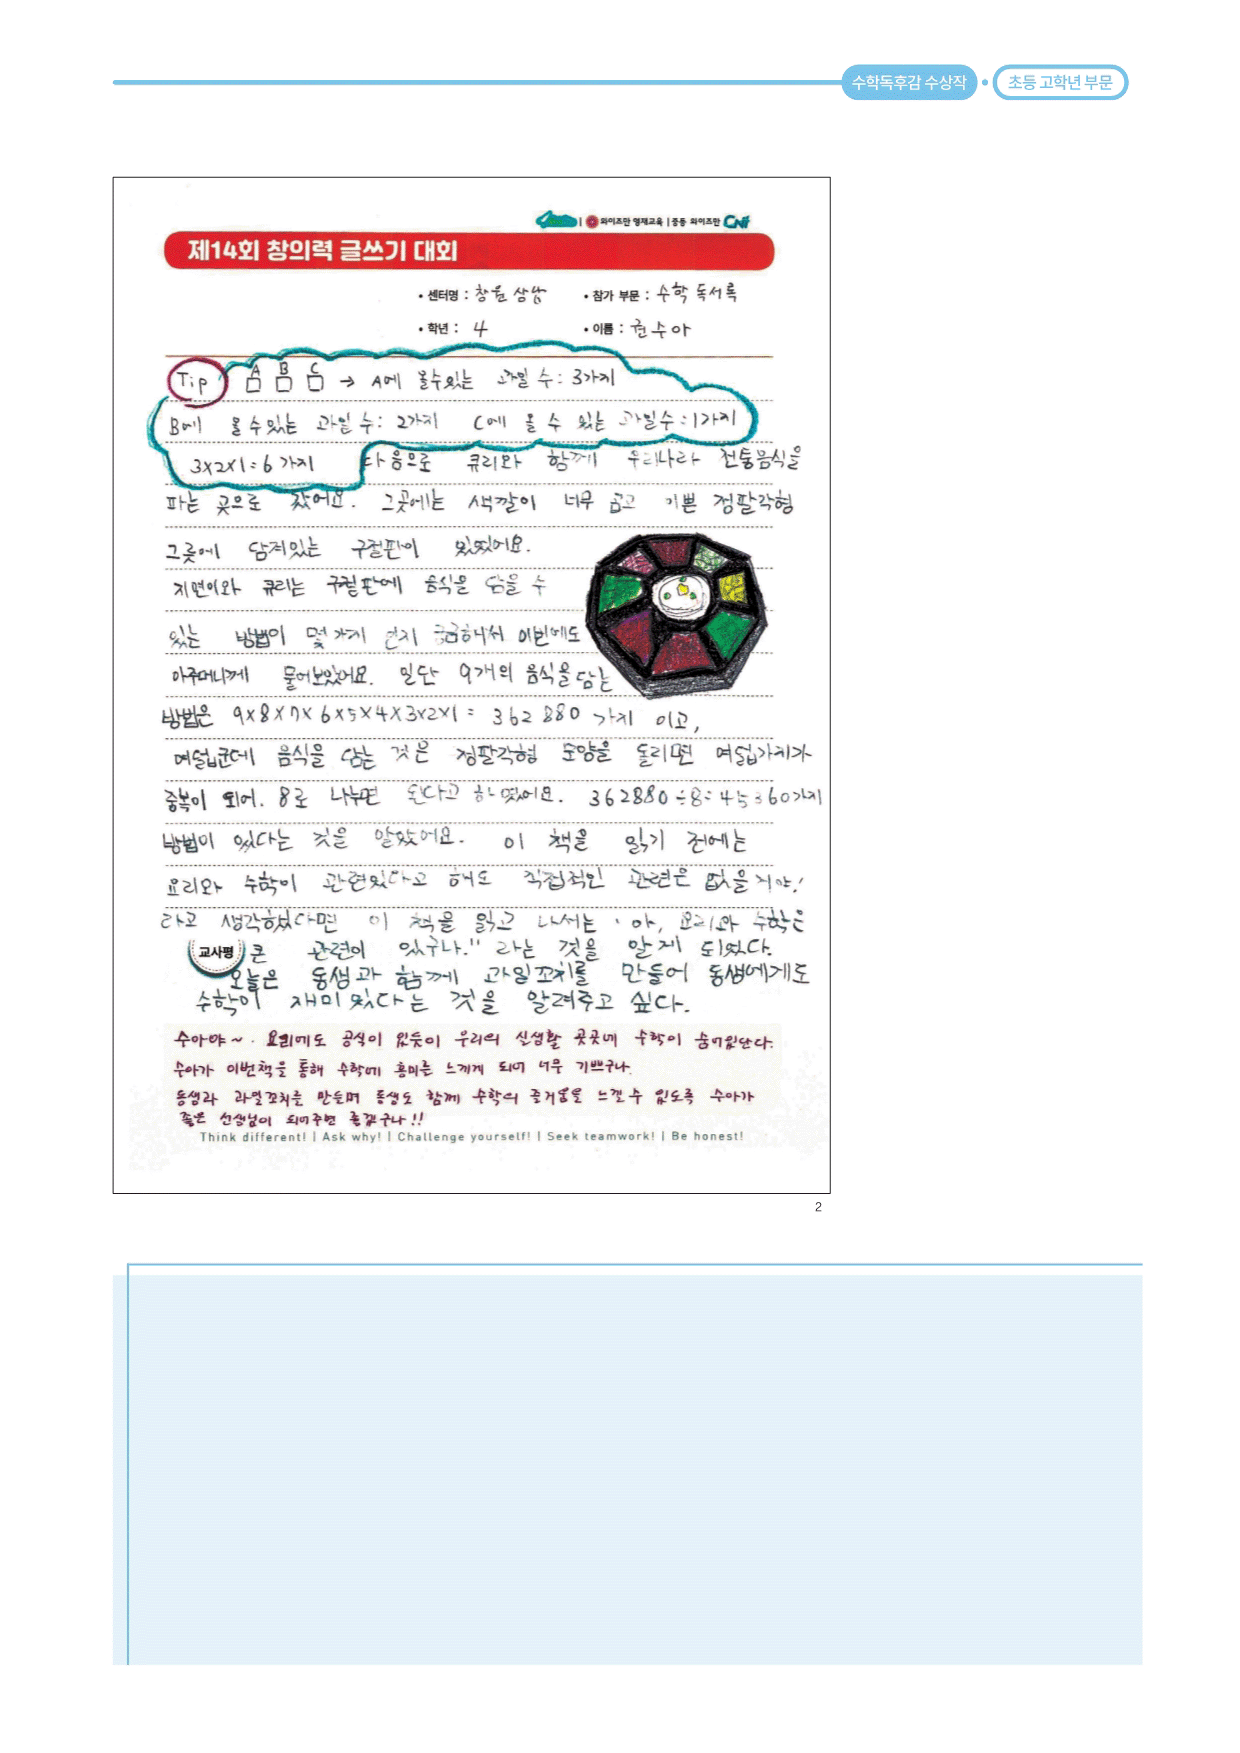 수학독후감 수상작 • 초등 고학년 부문
와이즈만 영재교육 | 중등 와이즈만 CNI
제14회 창의력 글쓰기 대회
• 센터명 : 창원 상남 • 참가 부문 : 수학 독서록
• 학년 : 4 • 이름 : 권수아
Tip A B C → A에 올수있는 과일 수: 3가지
B에 올 수있는 과일 수: 2가지 C에 올 수 있는 과일수: 1가지
3×2×1=6가지 다음으로 큐리와 함께 우리나라 전통음식을
파는 곳으로 갔어요. 그곳에는 색깔이 너무 곱고 기쁜 정팔각형
그릇에 담겨있는 구절판이 있었어요.
지면이와 큐리는 구절판에 음식을 담을 수
있는 방법이 몇가지 인지 궁금해서 이번에도
아주머니께 물어보았어요. 일단 9개의 음식을 담는
방법은 9×8×7×6×5×4×3×2×1= 362880 가지 이고,
여덟군데 음식을 담는 것은 정팔각형 모양을 돌리면 여덟가지가
중복이 되어. 8로 나누면 된다고 하였어요. 362880÷8=45360가지
방법이 있다는 것을 알았어요. 이 책을 읽기 전에는
요리와 수학이 관련있다고 해도 직접적인 관련은 없을거야!
라고 생각했다면 이 책을 읽고 나서는 '아, 요리와 수학은
교사평 큰 관련이 있구나." 라는 것을 알게 되었다.
오늘은 동생과 함께 과일꼬치를 만들어 동생에게도
수학이 재미있다는 것을 알려주고 싶다.
수아야~. 요리에도 공식이 있듯이 우리의 실생활 곳곳에 수학이 숨어있단다.
수아가 이번책을 통해 수학에 흥미를 느끼게 되어 너무 기쁘구나.
동생과 과일꼬치를 만들며 동생도 함께 수학의 즐거움을 느낄수 있도록 수아가
좋은 선생님이 되어주면 좋겠구나!!
Think different! | Ask why! | Challenge yourself! | Seek teamwork! | Be honest!
2